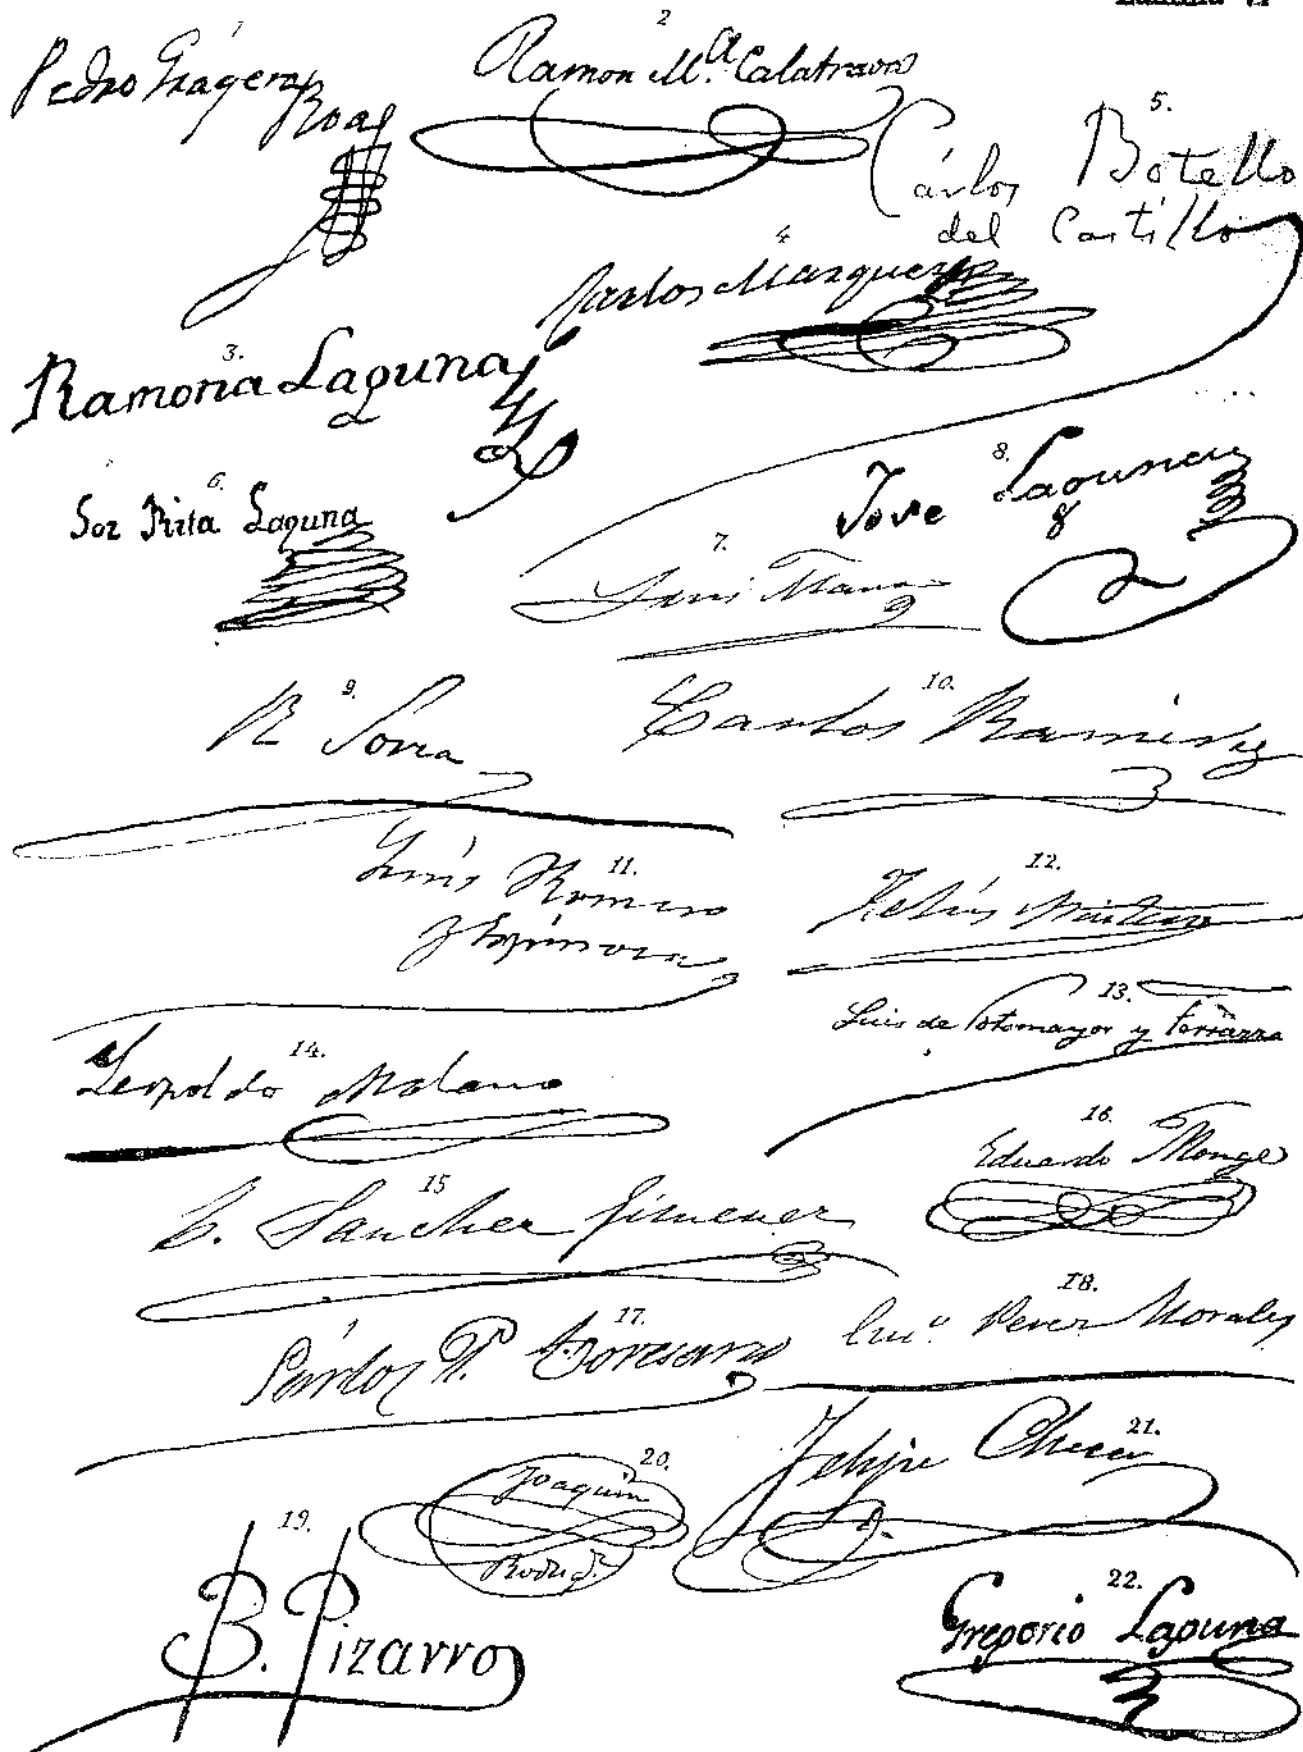 1
Pedro Grágera
Roa
2
Ramon M.ª Calatrava
5.
Cárlos Botello
del Castillo
4
Carlos Marquez
3.
Ramona Laguna
6.
Sor Rita Laguna
8.
Jose Laguna
7.
9.
R Soria
10.
Carlos Ramirez
11.
Luis Romero
y Espinosa
12.
13.
Luis de Sotomayor y Terrazas
14.
Leopoldo Molano
16.
Eduardo Monge
15
E. Sanchez Jimenez
17.
18.
Perez Morales
21.
Felipe Checa
20.
Joaquin
Rodrig.z
19.
B. Pizarro
22.
Gregorio Laguna